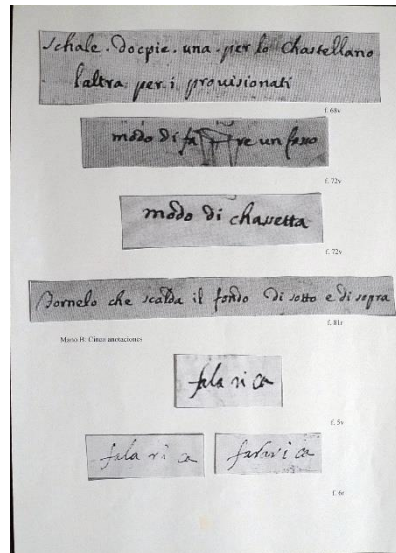 schale . docpie . una . per lo chastellano
laltra per . i prouisionati
f. 68v
modo di fa re un fosso
f. 72v
modo di chassetta
f. 72v
fornelo che scalda il fondo di sotto e di sopra
f. 81r
Mano B: Cinco anotaciones
fala ri ca
f. 5v
fala ri ca
farari ca
f. 6r